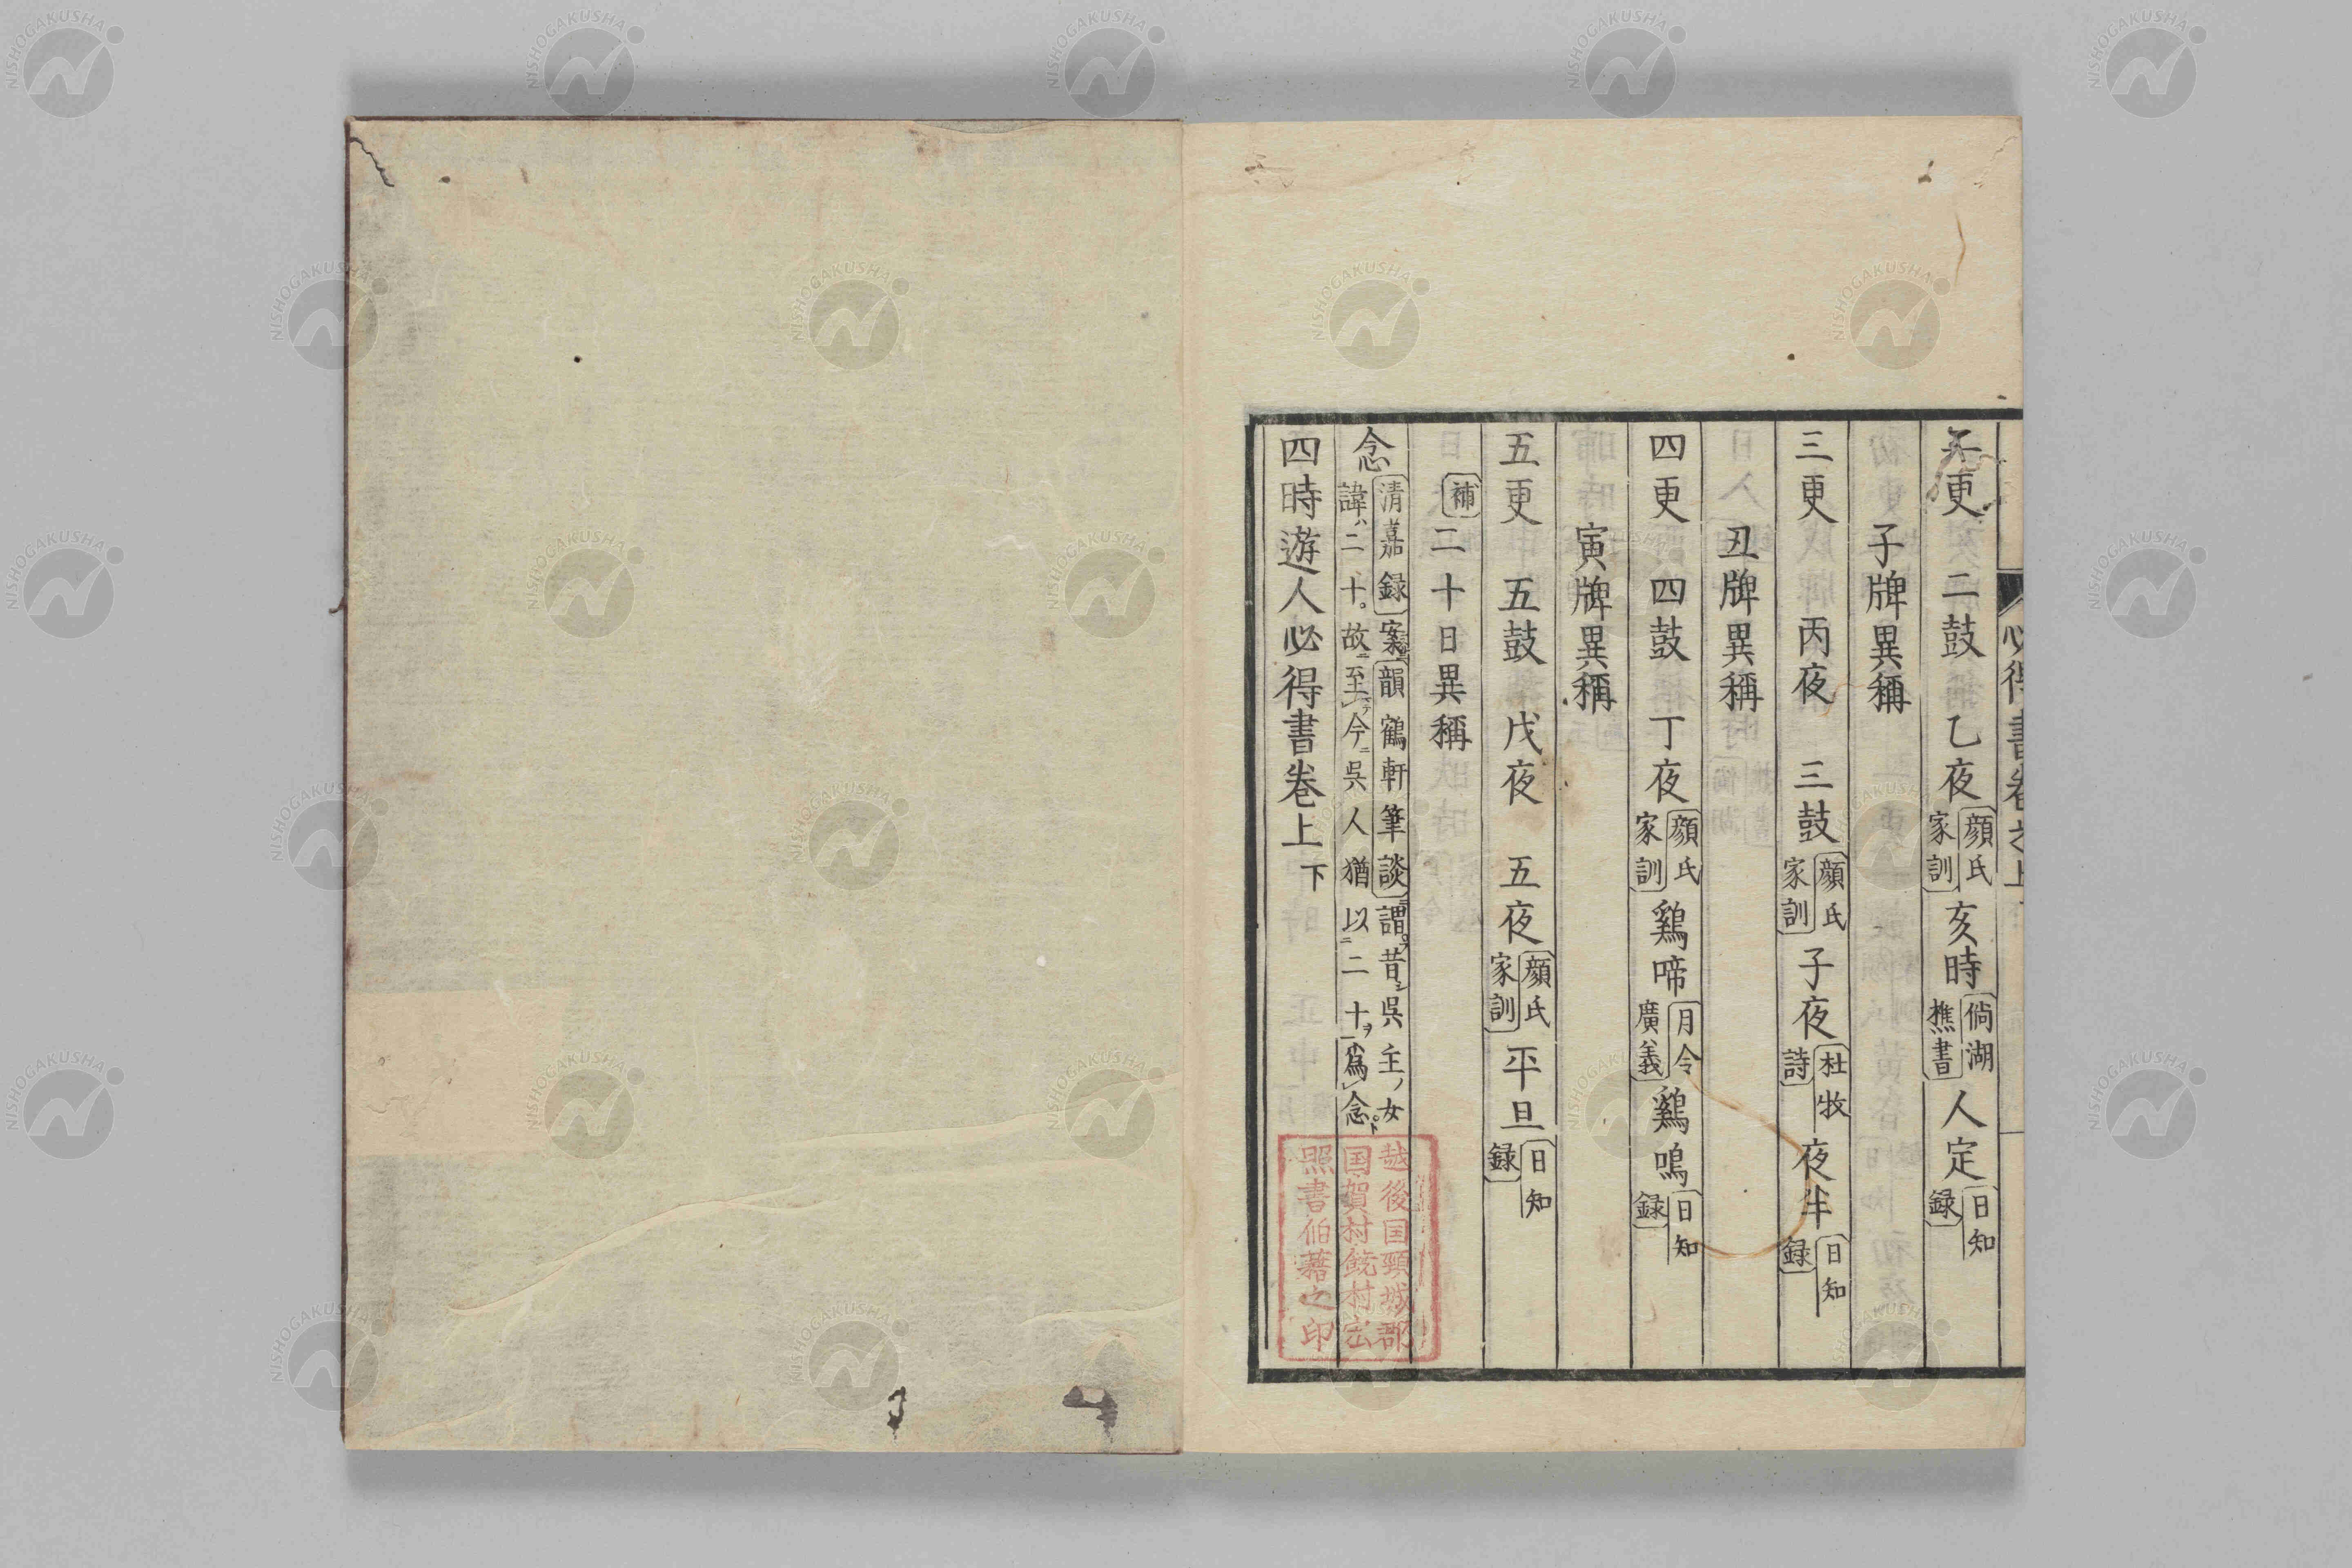 必得書卷之上
更 二鼓 乙夜 顔氏家訓 亥時 倘湖樵書 人定 日知録
子牌異稱
三更 丙夜 三鼓 顔氏家訓 子夜 杜牧詩 夜半 日知録
丑牌異稱
四更 四鼓 丁夜 顔氏家訓 鷄啼 月令廣義 鷄鳴 日知録
寅牌異稱
五更 五鼓 戊夜 五夜 顔氏家訓 平旦 日知録
補 二十日異稱
念 清嘉録 案 韻鶴軒筆談 謂昔呉主ノ女
諱ハ二十。故ニ至テ今ニ呉人猶以ニ二十ヲ爲念ト
四時遊人必得書卷上 下
越後国頸城郡
国賀村
照書伯藉之印
NISHOGAKUSHA